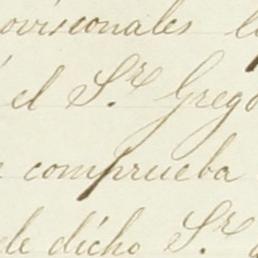 ovisionales
el Sr. Grego
comprueba
de dicho Sr.